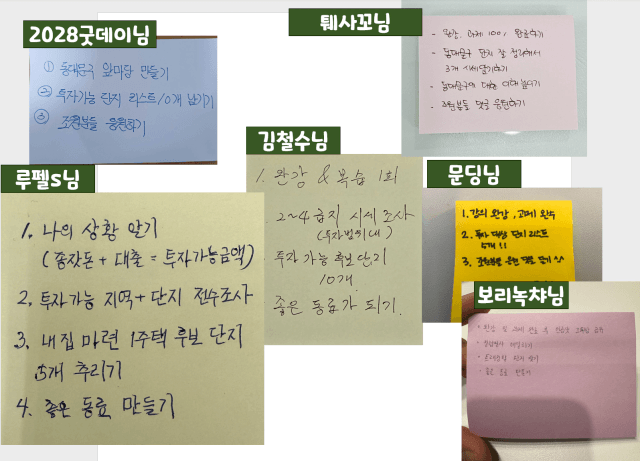 2028굿데이님
① 동대문구 앞마당 만들기
② 투자가능 단지 리스트 10개 남기기
③ 조원분들 응원하기
퉤사꼬님
- 완강, 과제 100% 완료하기
- 동대문구 단지 잘 정리해서
3개 시세따기하기
- 동대문구에 대한 이해 높이기
- 조원분들 댓글 응원하기
루펠s님
1. 나의 상황 알기
(종잣돈 + 대출 = 투자가능금액)
2. 투자가능 지역 + 단지 전수조사
3. 내집 마련 1주택 후보 단지
5개 추리기
4. 좋은 동료 만들기
김철수님
1. 완강 & 복습 1회
2~4급지 시세 조사
(투자범위 내)
투자 가능 후보단지
10개
좋은 동료가 되기.
문딩님
1. 강의 완강, 과제 완수
2. 투자 대상 단지 리스트
5개 !!
3. 조원분들 응원 댓글
보리녹챠님